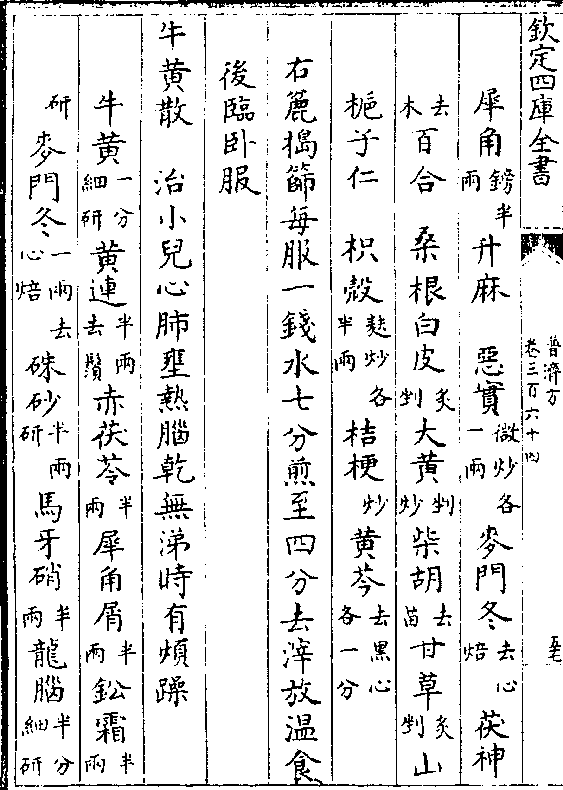 欽定四庫全書
普濟方
卷三百六十四
犀角鎊半兩 升麻 惡實微炒各一兩 麥門冬去心焙 茯神
去木 百合 桑根白皮炙剉 大黄剉炒 柴胡去苗 甘草炙剉 山
梔子仁 枳殼麩炒各半兩 桔梗炒 黄芩去黑心各一分
右麄搗篩每服一錢水七分煎至四分去滓放温食
後臨卧服
牛黄散 治小兒心肺壅熱腦乾無涕時有煩躁
牛黄一分細研 黄連半兩去鬚 赤茯苓半兩 犀角屑半兩 鈆霜半兩
研 麥門冬一兩去心焙 硃砂半兩研 馬牙硝半兩 龍腦半分細研